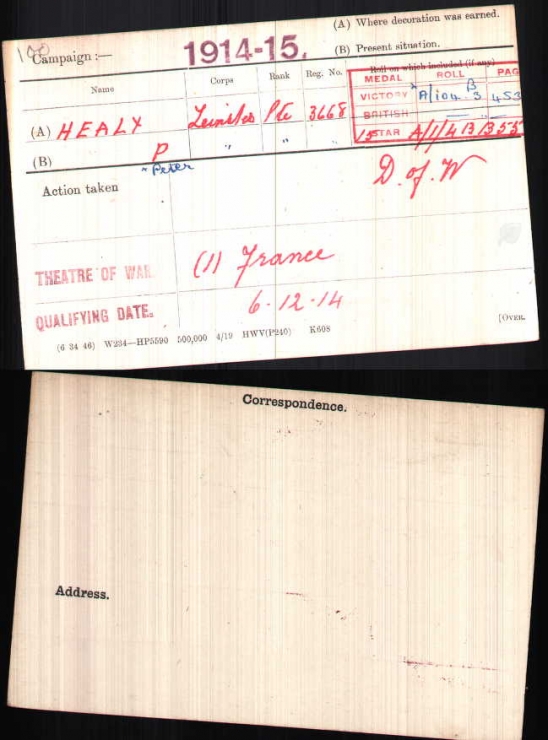 (A) Where decoration was earned.
Campaign :— 1914-15.
(B) Present situation.
Name Corps Rank Reg. No. Roll on which included (if any)
MEDAL ROLL PAGE
VICTORY A/104 B 3 453
BRITISH — —
15 STAR A/1/4 B 355
(A) HEALY Leinster Pte 3668
(B) P " " "
Peter
Action taken
D. of W
THEATRE OF WAR. (1) France
QUALIFYING DATE. 6-12-14
(6 34 46) W234—HP5590 500,000 4/19 HWV(P240) K608
[OVER.
Correspondence.
Address.